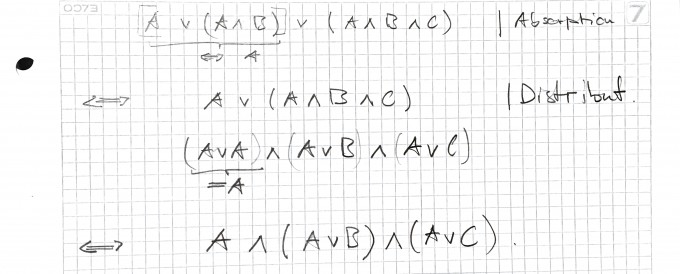 0073 7
[A ∨ (A ∧ B)] ∨ (A ∧ B ∧ C) | Absorption
⇔ A
⇔ A ∨ (A ∧ B ∧ C) | Distribut.
(A∨A) ∧ (A∨B) ∧ (A∨C)
=A
⇔ A ∧ (A∨B) ∧ (A∨C).